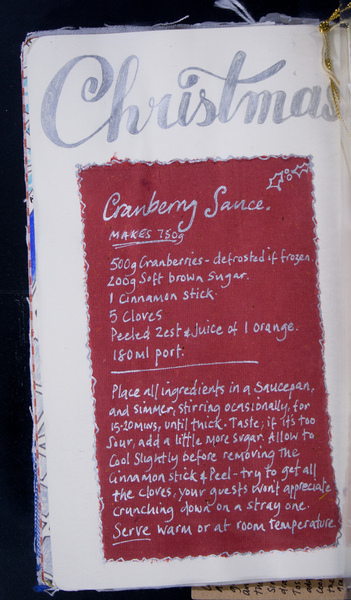 Christmas
Cranberry Sauce.
MAKES 750g
500g Cranberries - defrosted if frozen.
200g Soft brown sugar.
1 Cinnamon stick.
5 Cloves
Peeled Zest & Juice of 1 orange.
180ml port.
Place all ingredients in a saucepan,
and simmer, stirring ocasionally, for
15-20 mins, until thick. Taste; if it's too
Sour, add a little more sugar. Allow to
Cool slightly before removing the
Cinnamon stick & Peel - try to get all
the cloves; your guests won't appreciate
crunching down on a stray one.
Serve warm or at room temperature